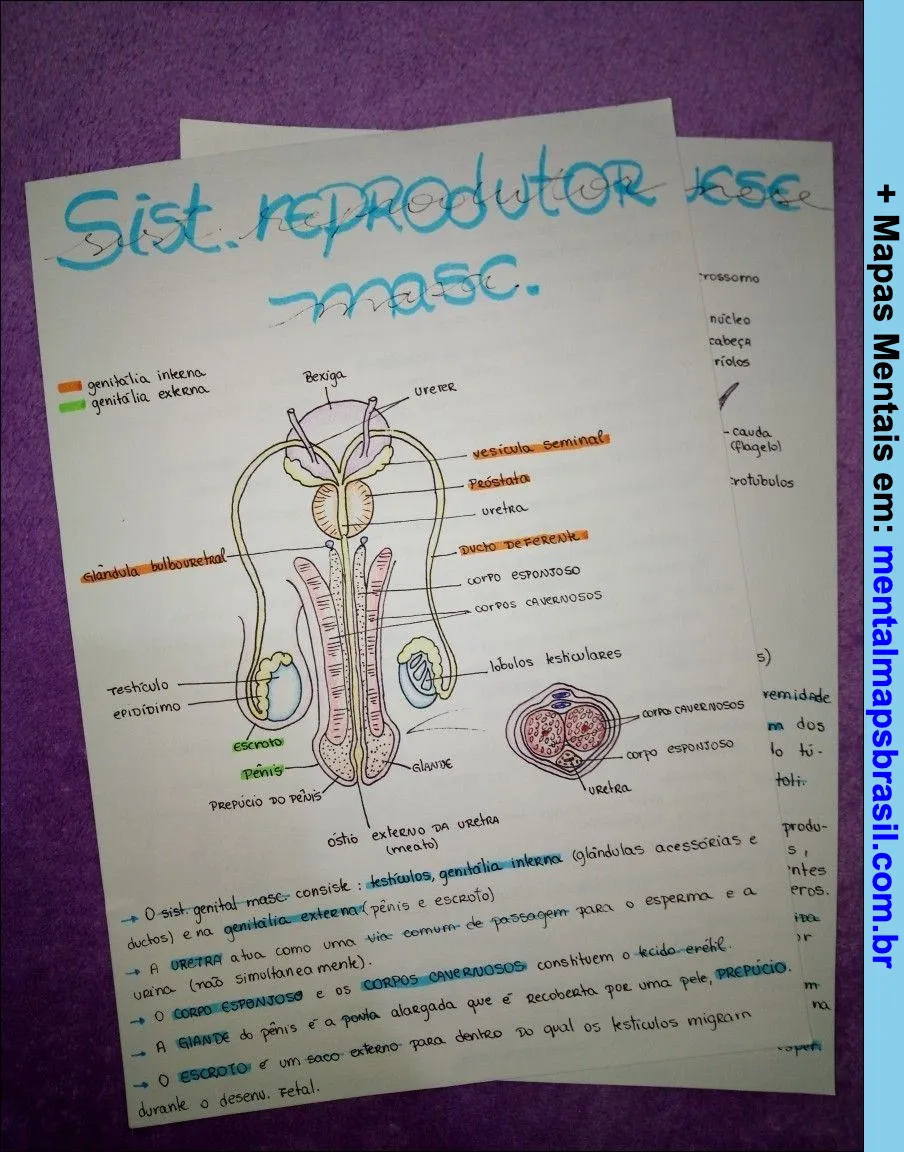 Sist. reprodutor
masc.
genitália interna
genitália externa
Bexiga
ureter
vesícula seminal
Próstata
uretra
Ducto Deferente
Glândula bulbouretral
corpo esponjoso
corpos cavernosos
Testículo
epidídimo
lóbulos testiculares
Escroto
Pênis
Prepúcio do pênis
Glande
óstio externo da uretra
(meato)
corpos cavernosos
corpo esponjoso
uretra
→ O sist. genital masc. consiste: testículos, genitália interna (glândulas acessórias e
ductos) e na genitália externa (pênis e escroto)
→ A URETRA atua como uma via comum de passagem para o esperma e a
urina (não simultaneamente).
→ O CORPO ESPONJOSO e os CORPOS CAVERNOSOS constituem o tecido erétil.
→ A GLANDE do pênis é a ponta alargada que é recoberta por uma pele, PREPÚCIO.
→ O ESCROTO é um saco externo para dentro do qual os testículos migram
durante o desenv. Fetal.
rossomo
núcleo
cabeça
ríolos
cauda
(flagelo)
crotúbulos
s)
remidade
m dos
lo tú-
toli.
produ-
s,
ntes
eros.
or
m
na
+ Mapas Mentais em: mentalmapsbrasil.com.br